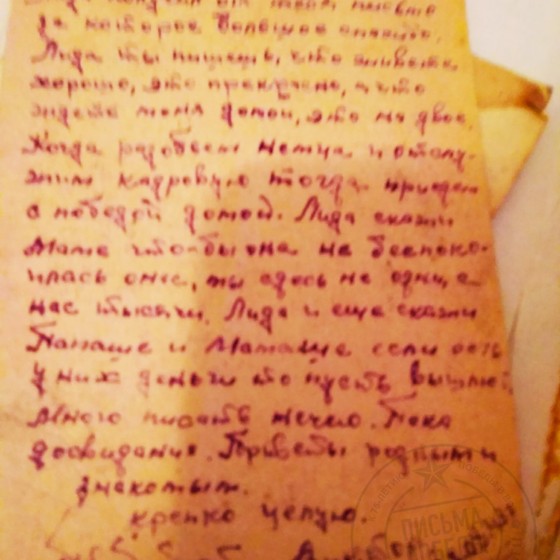 от твои письмо
за которое большое спасибо.
Лида ты пишешь, что живете
хорошо, это прекрасно, а что
ждете меня домой, это на двое.
Когда разобьем немца и отслу-
жим кадровую тогда приедем
с победой домой. Лида скажи
Маме что-бы она не беспоко-
илась мы здесь не одни, а
нас тысячи. Лида и еще скажи
Папаше и Мамаше если есть
у них деньги то пусть вышлют
много писать нечего. Пока
досвидания. Приветы родным и
знакомым.
крепко целую.
ПИСЬМА